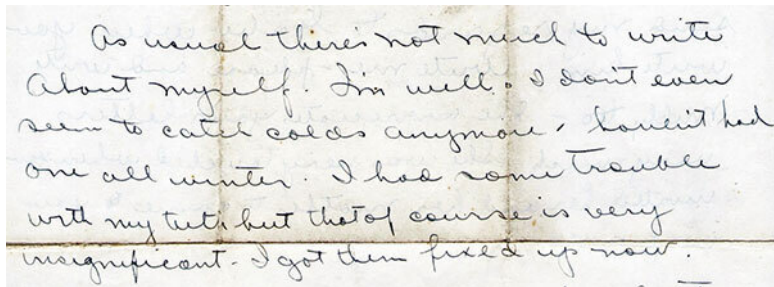 As usual theres not much to write
about myself. Im well. I don't even
seem to catch colds anymore, haven't had
one all winter. I had some trouble
with my teeth but that of course is very
insignificant. I got them fixed up now.